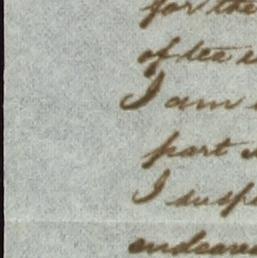 for the
of tea
I am
part
I susp
endeavo